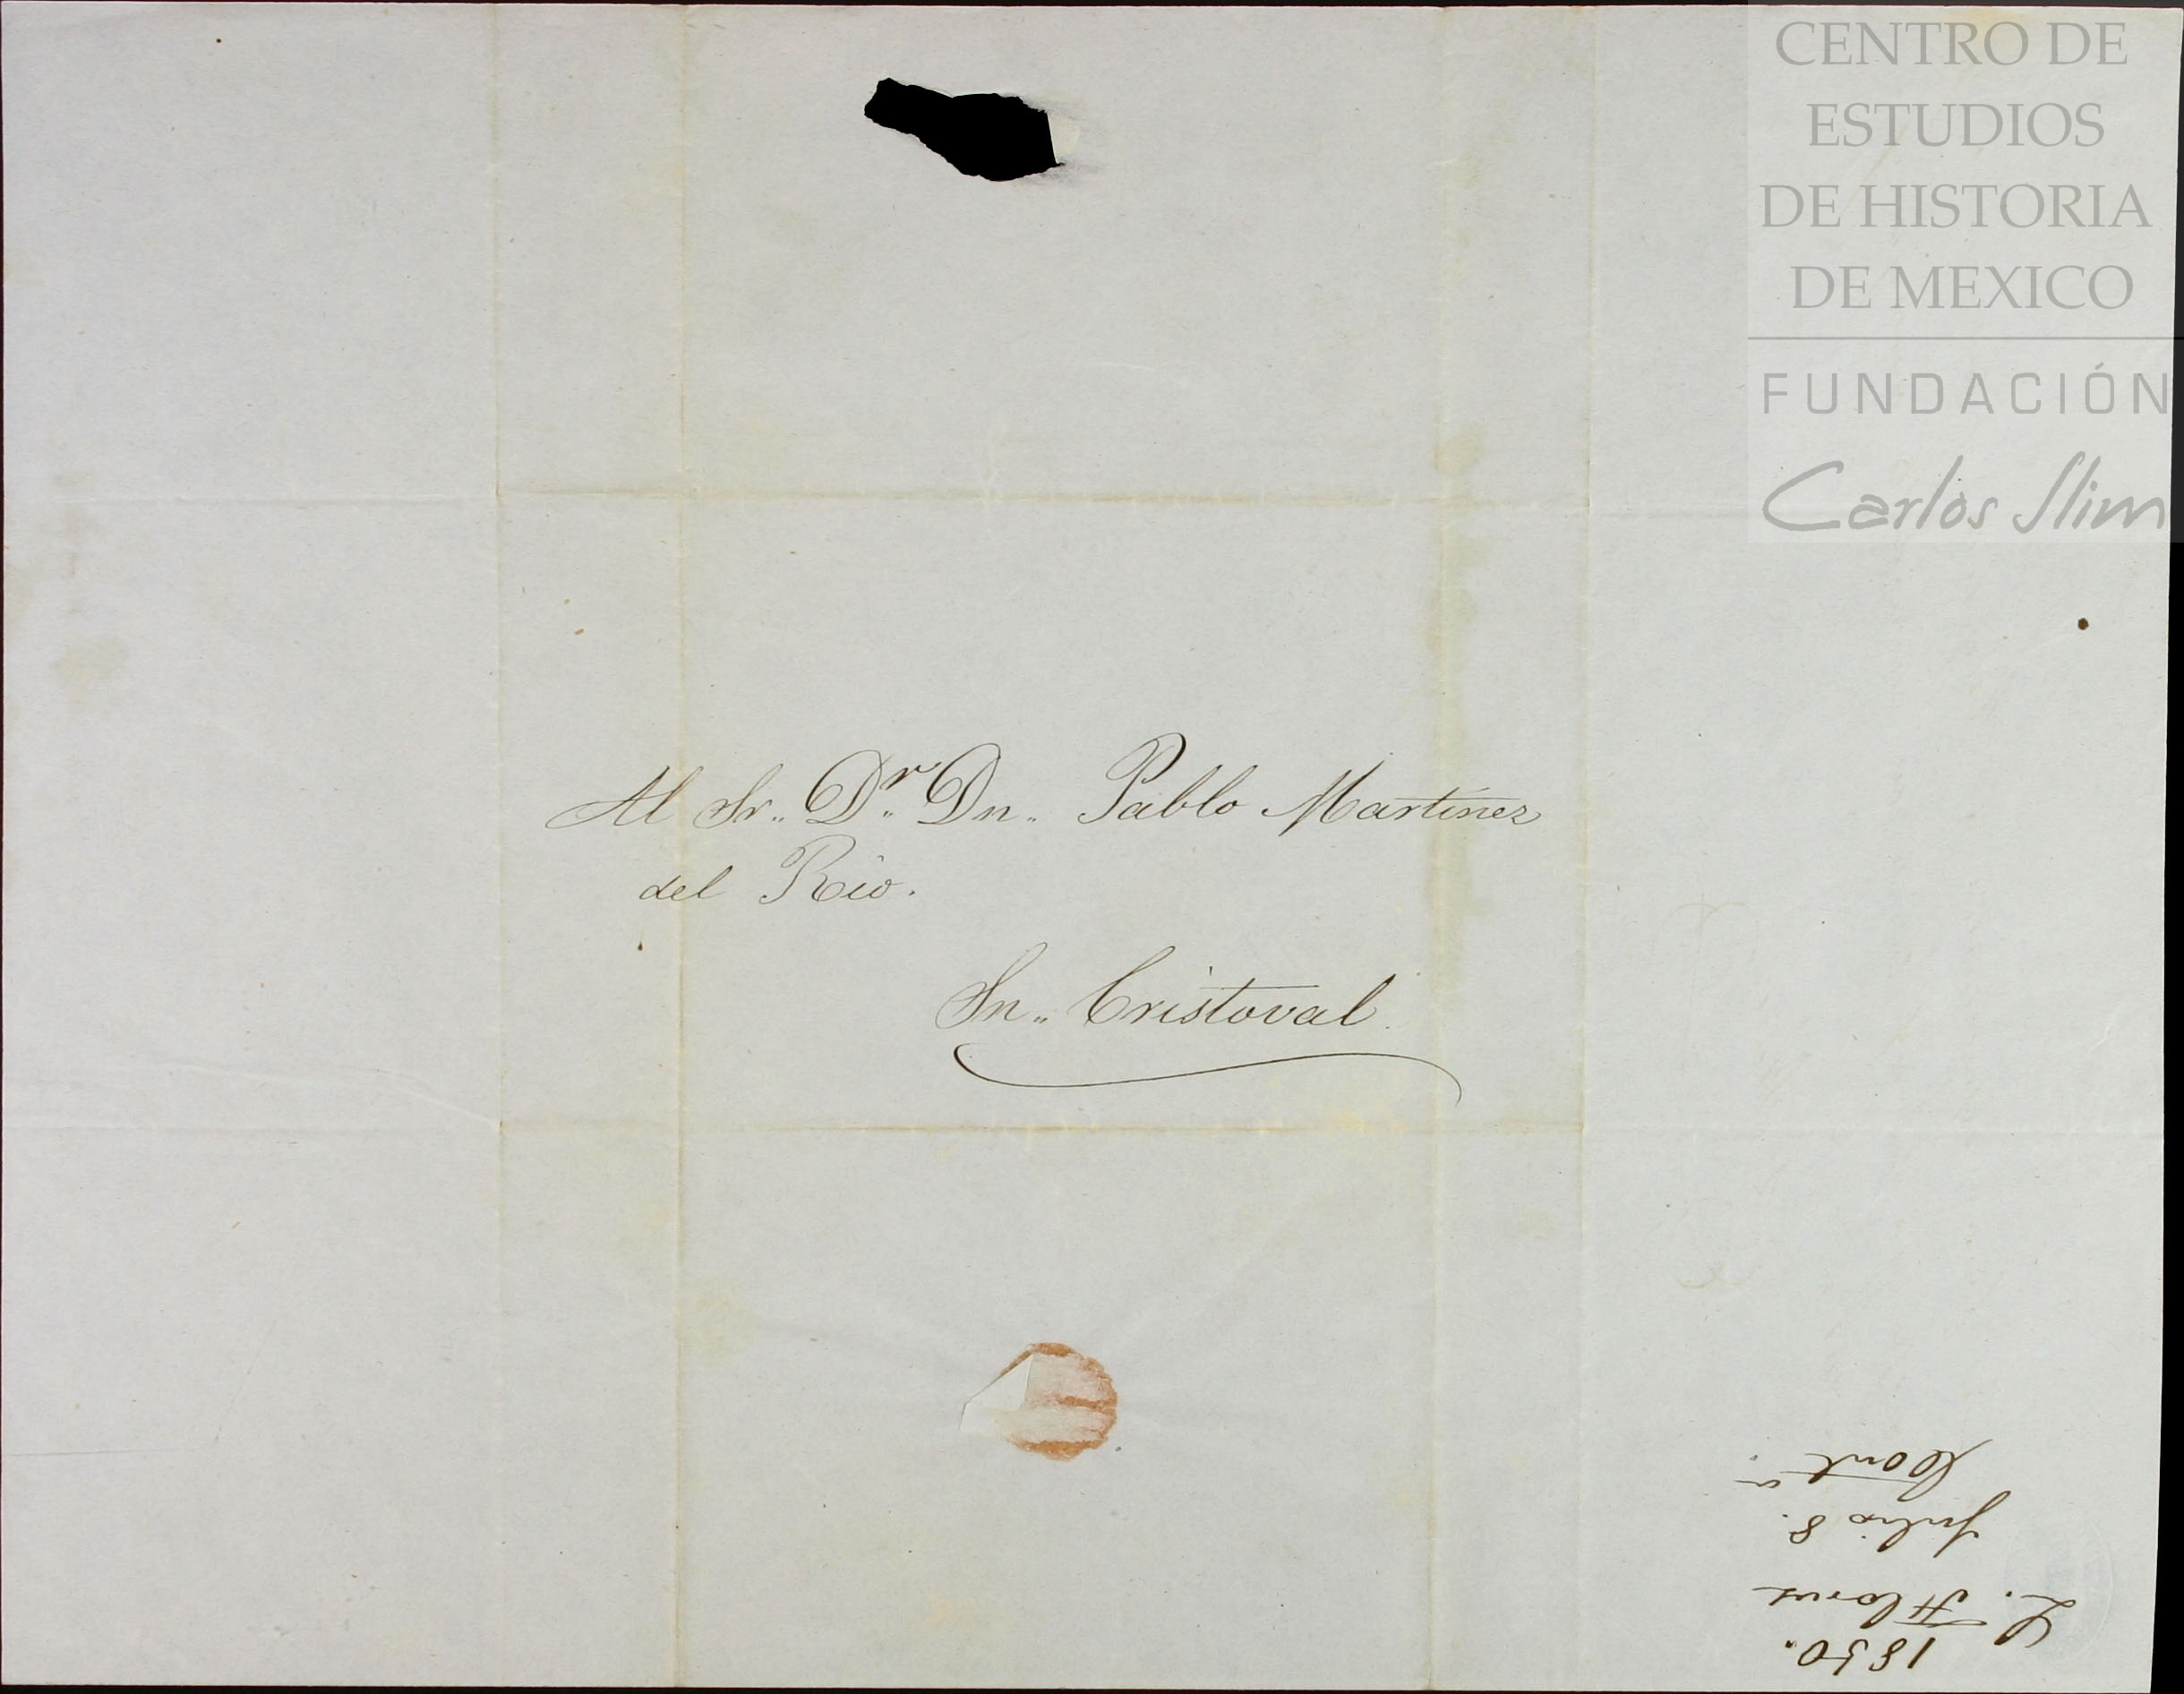 CENTRO DE
ESTUDIOS
DE HISTORIA
DE MEXICO
FUNDACIÓN
Carlos Slim
Al Sr. Dr. Dn. Pablo Martínez
del Rio.
Sn. Cristoval
1850.
L. Flores
Julio 8.
Cont.a